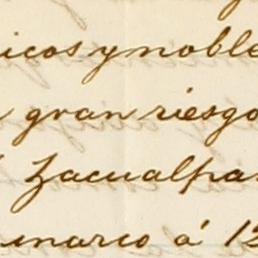 icos y noble
gran riesgo
Zacualpa
marco á 12